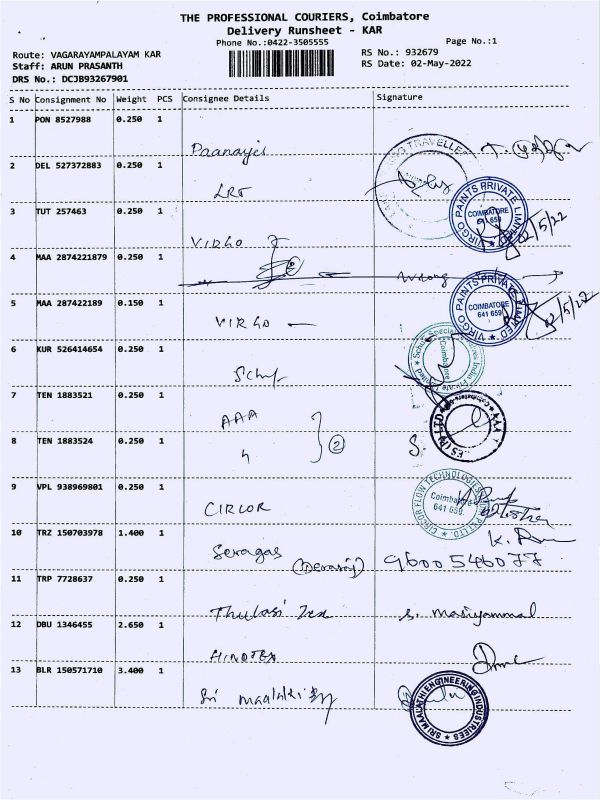 THE PROFESSIONAL COURIERS, Coimbatore
Delivery Runsheet - KAR
Phone No.:0422-3505555 Page No.:1
Route: VAGARAYAMPALAYAM KAR RS No.: 932679
Staff: ARUN PRASANTH RS Date: 02-May-2022
DRS No.: DCJB93267901
S No Consignment No Weight PCS Consignee Details Signature
1 PON 8527988 0.250 1
2 DEL 527372883 0.250 1
LRT
3 TUT 257463 0.250 1
VIRGO PAINTS PRIVATE LIMITED COIMBATORE 641 659
VIRGO 02/5/22
4 MAA 2874221879 0.250 1
Wrong
5 MAA 287422189 0.150 1
VIRGO PAINTS PRIVATE LIMITED COIMBATORE 641 659
VIRGO 02/5/22
6 KUR 526414654 0.250 1
7 TEN 1883521 0.250 1
AAA
8 TEN 1883524 0.250 1
2
9 VPL 938969801 0.250 1
CIRCOR FLOW TECHNOLOGIES Coimbatore 641 659.
CIRCOR
10 TRZ 150703978 1.400 1
Seragas 9600546077
11 TRP 7728637 0.250 1
Thulasi Tex S. Masiyammal
12 DBU 1346455 2.650 1
13 BLR 150571710 3.400 1
Sri Maalathi
SRI MAALATHI ENGINEERING INDUSTRIES